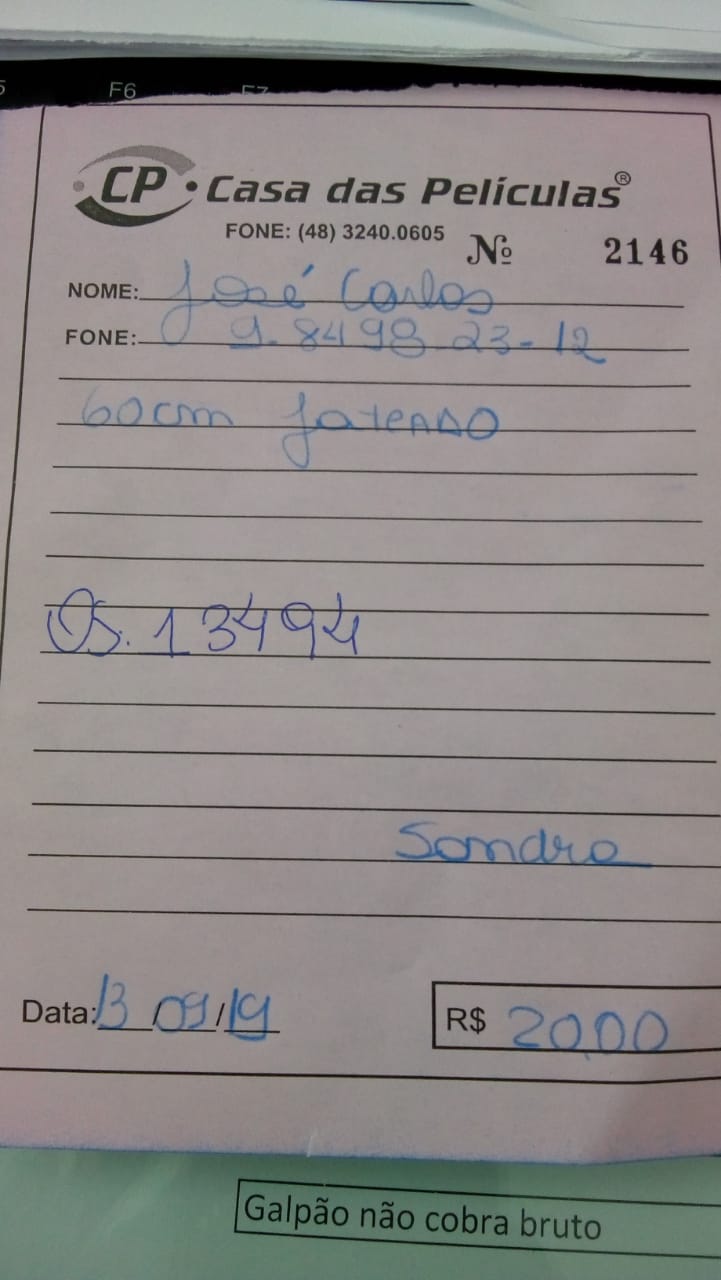 F6 F7
CP • Casa das Películas®
FONE: (48) 3240.0605 Nº 2146
NOME: José Carlos
FONE: 9.8498 23-12
60cm jateado
OS. 13494
Sandra
Data: 13/09/19 R$ 20,00
Galpão não cobra bruto